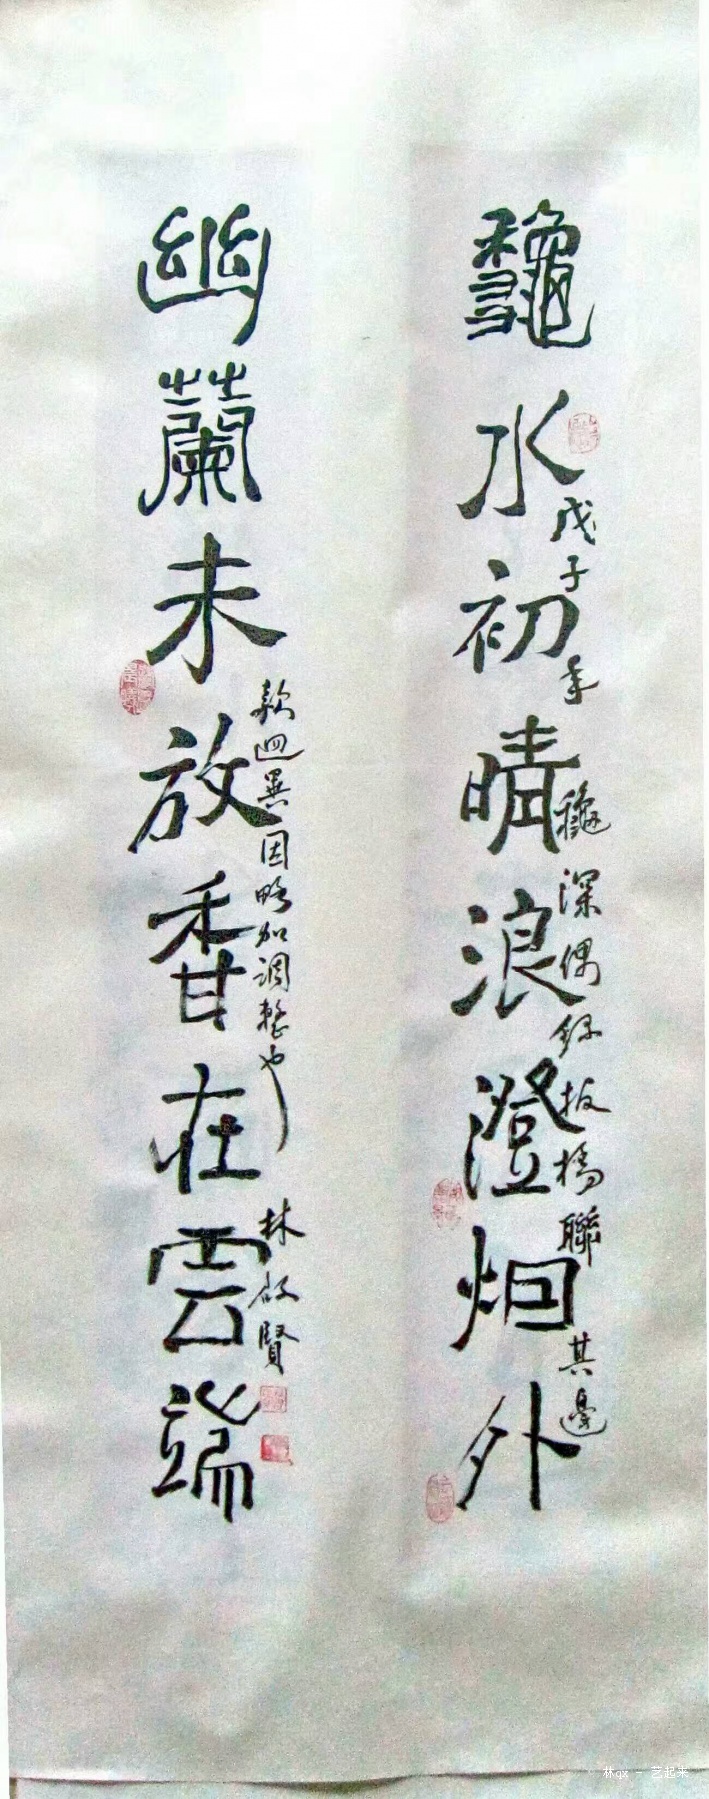 龝水初晴浪澄烟外
戊子年龝深偶錄板橋聯其邊
幽蘭未放香在雲端
款迥異因略加調整也
林啟賢
林qx - 艺起来